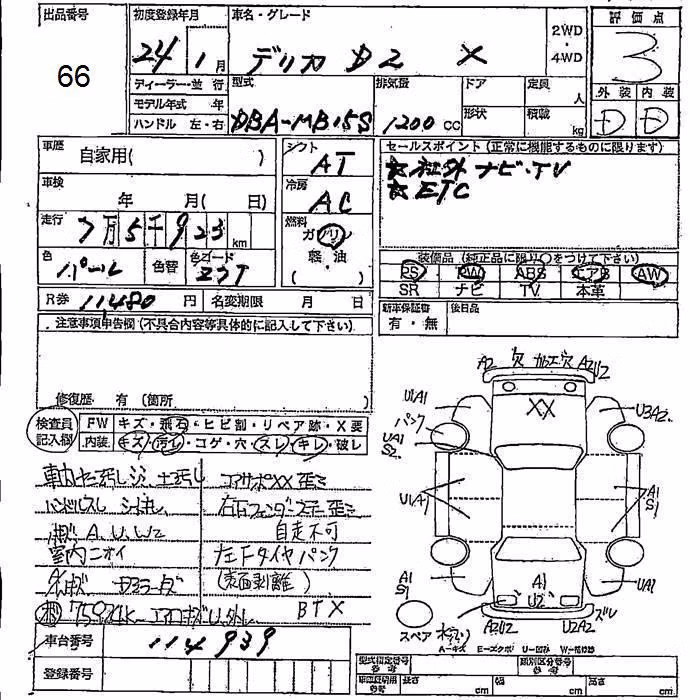 出品番号
66
初度登録年月
24 1月
車名・グレード
デリカ D2 X
2WD
・
4WD
評価点
3
外装 内装
D D
ディーラー・並行
モデル年式 年
ハンドル 左・右
型式
DBA-MB15S
排気量
1200 CC
ドア
形状
定員
人
積載
kg
車歴
自家用( )
車検
年 月( 日)
走行
7万5千923km
色
パール
色替
色コード
ZJT
シフト
AT
冷房
AC
燃料
ガソリン
軽・油
( )
セールスポイント(正常に機能するものに限ります)
☆社外ナビ・TV
☆ETC
装備品(純正品に限り○をつけて下さい)
PS PW ABS エアB AW
SR ナビ TV 本革
R券 11480円 名変期限 月 日
新車保証書
有・無
後日品
注意事項申告欄(不具合内容等具体的に記入して下さい)
修復歴 有(箇所 )
検査員
記入欄
FW キズ・飛石・ヒビ割・リペア跡・X要
内装 キズ・汚れ・コゲ・穴・スレ・キレ・破レ
コアサポXX歪ミ
ハンドルスレ
右下フェンダーステー歪ミ
自走不可
室内ニオイ
左Fタイヤパンク
BTX
車台番号 114939
登録番号
A2 欠 加工穴 A2U2
U1A1
XX
U3A2
パンク
UA1
S2
U1A1
A1
S1
A1
S1
A1
U2
UA1
スペア
A2U2
U2A2
ズレ
A=キズ E=エクボ U=凹み W=補修跡
型式指定番号
類別区分番号
長さ cm 幅 cm 高さ cm